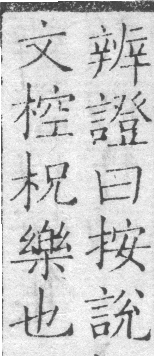 辨證曰按說
文椌柷樂也